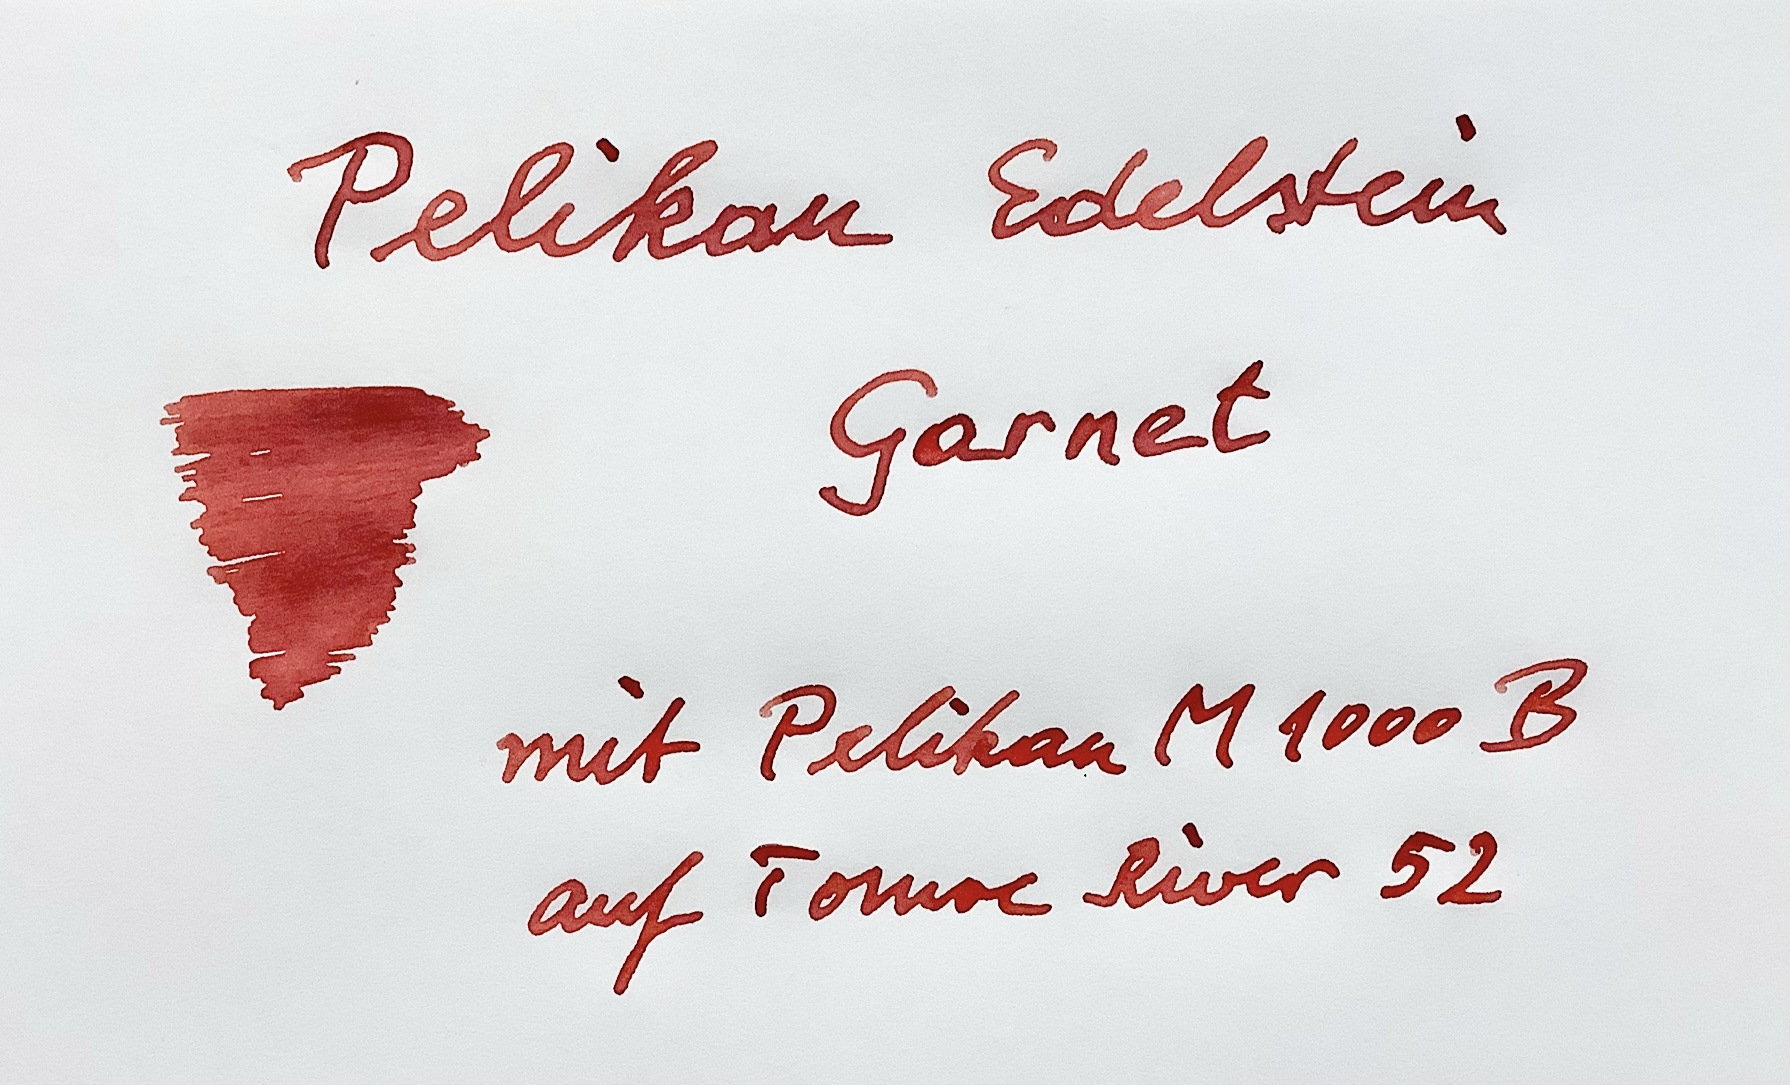 Pelikan Edelstein
Garnet
mit Pelikan M 1000 B
auf Tomoe River 52